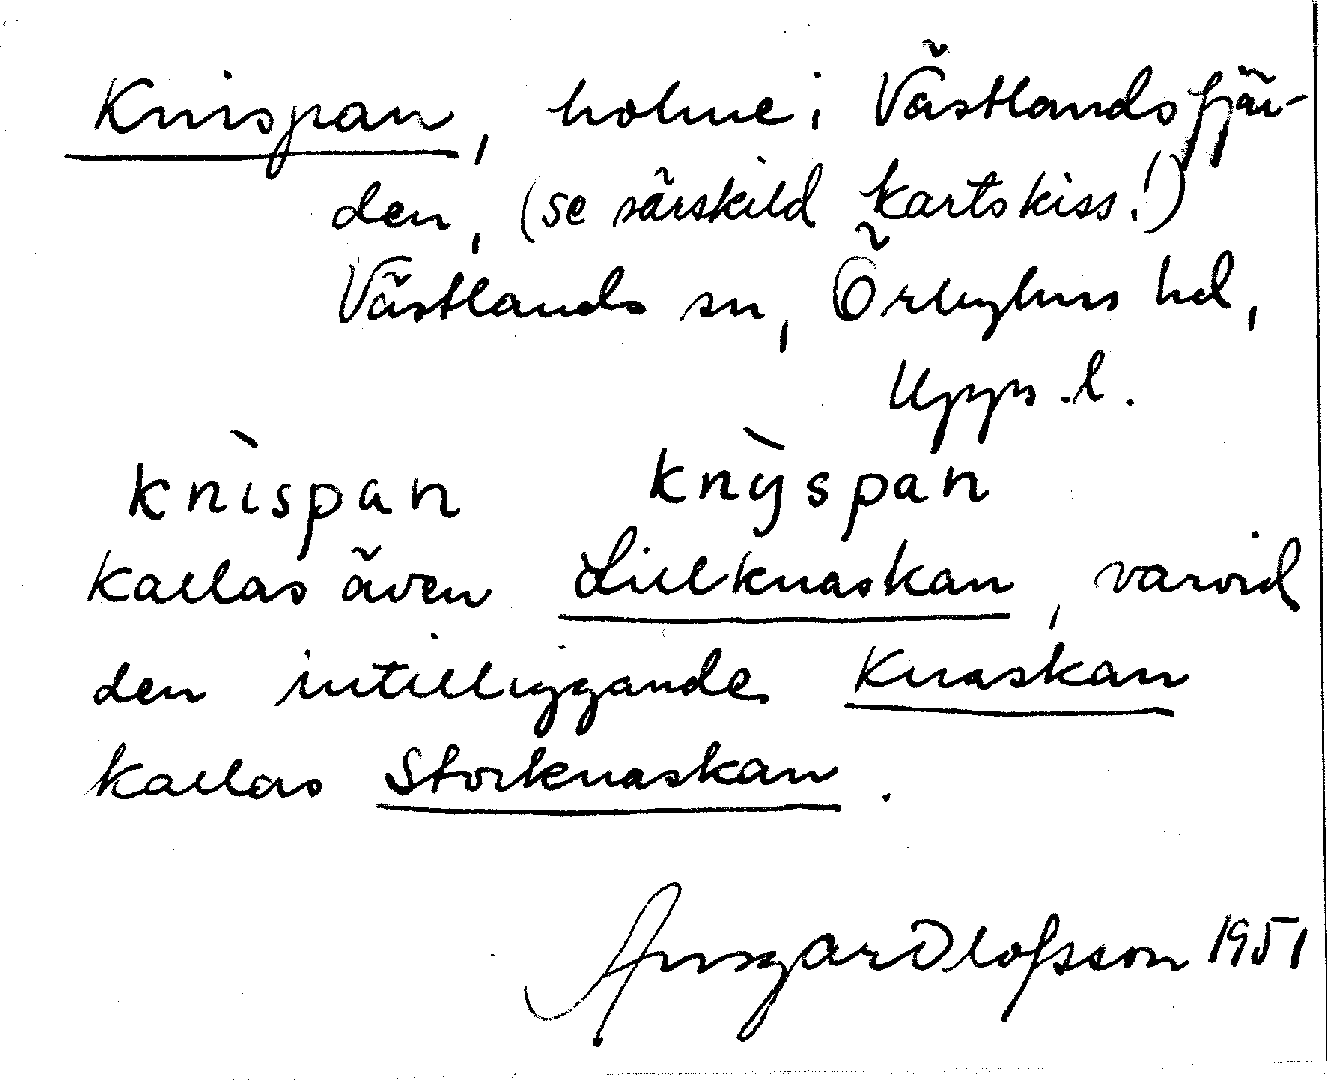 Knispan, holme i Västlandsfjär-
den, (se särskild kartskiss!)
Västlands sn, Örbyhus hd,
Upps. l.
knìspan knỳspan
kallas även Lillknaskan, varvid
den intilliggande Knaskan
kallas Storknaskan.
Ansgar Olofsson 1951